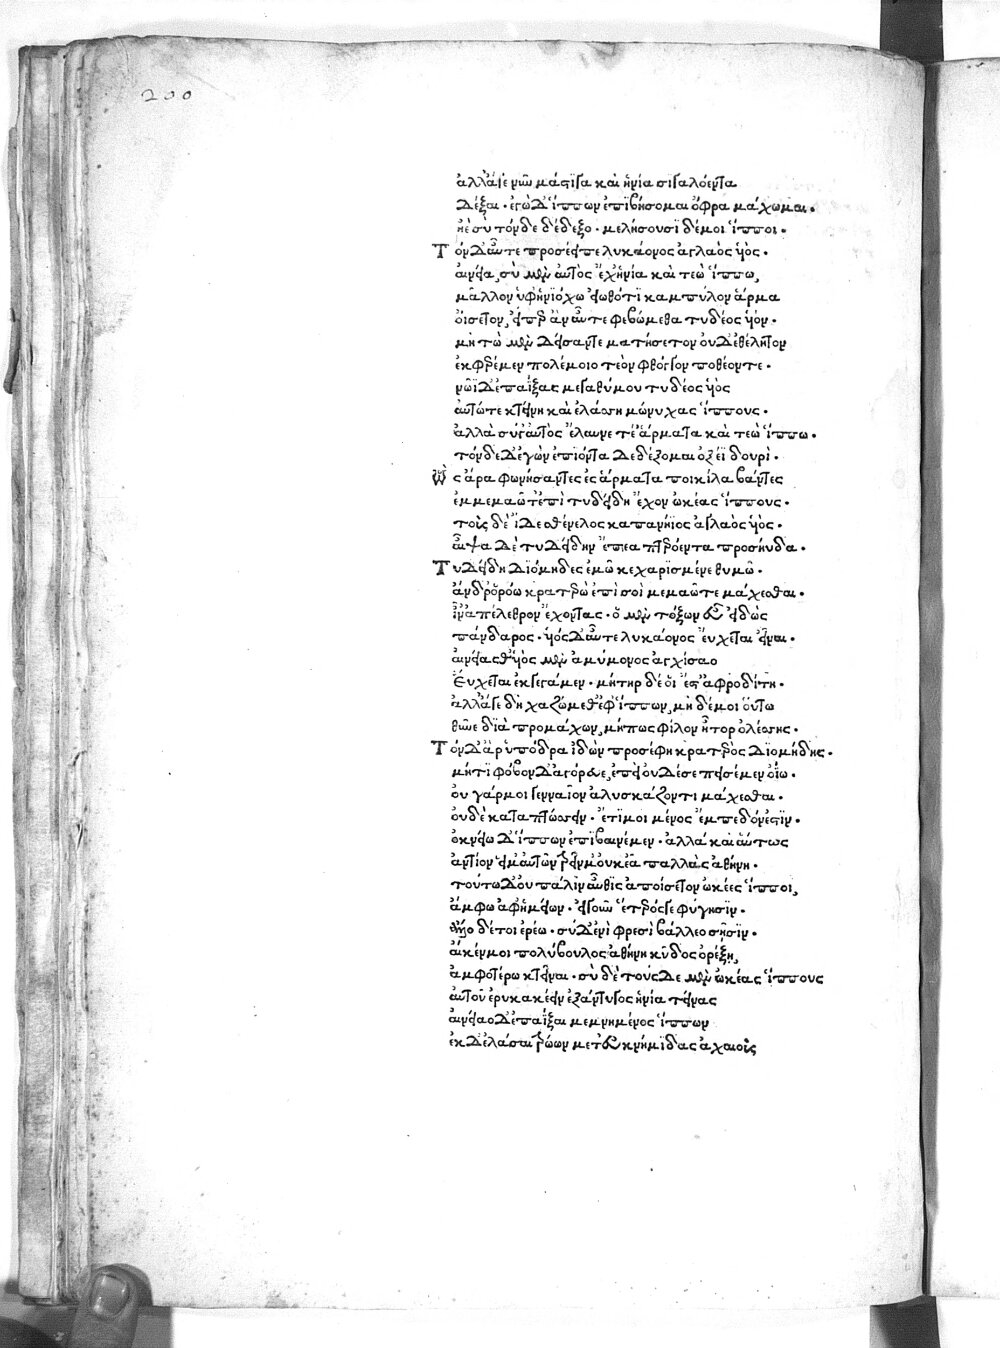 200
ἀλλ' ἄγε νῦν μάστιγα καὶ ἡνία σιγαλόεντα
δέξαι· ἐγὼ δ' ἵππων ἐπιβήσομαι ὄφρα μάχωμαι·
ἠὲ σὺ τόνδε δέδεξο· μελήσουσι δέ μοι ἵπποι·
Τὸν δ' αὖτε προσέειπε λυκάονος ἀγλαὸς υἱός·
αἰνεία, σὺ μὲν αὐτὸς ἔχ' ἡνία καὶ τεὼ ἵππω,
μᾶλλον ὑφ' ἡνιόχω εἰωθότι καμπύλον ἅρμα
οἴσετον, εἴπερ ἂν αὖτε φεβώμεθα τυδέος υἱόν·
μὴ τὼ μὲν δείσαντε ματήσετον οὐδ' ἐθέλητον
ἐκφερέμεν πολέμοιο τεὸν φθόγγον ποθέοντε·
νῶϊ δ' ἐπαΐξας μεγαθύμου τυδέος υἱὸς
αὐτώ τε κτείνη καὶ ἐλάσση μώνυχας ἵππους·
ἀλλὰ σύ γ' αὐτὸς ἔλαυνε τέ' ἅρματα καὶ τεὼ ἵππω·
τόνδε δ' ἐγὼν ἐπιόντα δεδέξομαι ὀξέϊ δουρί·
Ὣς ἄρα φωνήσαντες ἐς ἅρματα ποικίλα βάντες
ἐμμεμαῶτ' ἐπὶ τυδείδη ἔχον ὠκέας ἵππους·
τοὺς δὲ ἴδε σθένελος καπανήϊος ἀγλαὸς υἱός·
αἶψα δὲ τυδείδην ἔπεα πτερόεντα προσηύδα·
Τυδείδη διόμηδες ἐμῶ κεχαρισμένε θυμῶ·
ἄνδρ' ὁρόω κρατερὼ ἐπὶ σοὶ μεμαῶτε μάχεσθαι·
ἶν' ἀπέλεθρον ἔχοντας· ὁ μὲν τόξων εὖ εἰδὼς
πάνδαρος· υἱὸς δ' αὖτε λυκάονος εὔχεται εἶναι·
αἰνείας θ' υἱὸς μὲν ἀμύμονος ἀγχίσαο
Εὔχεται ἐκγεγάμεν· μήτηρ δέ οἵ ἐστ' ἀφροδίτη·
ἀλλ' ἄγε δὴ χαζώμεθ' ἐφ' ἵππων, μὴ δέ μοι οὕτω
θῦνε διὰ προμάχων, μήπως φίλον ἦτορ ὀλέσσης·
Τὸν δ' ἄρ' ὑπόδρα ἰδὼν προσέφη κρατερὸς διομήδης·
μήτι φόβον δ' ἀγόρευε, ἐπεὶ οὐδέ σε πεισέμεν οἴω·
οὐ γάρ μοι γενναῖον ἀλυσκάζοντι μάχεσθαι·
οὐδὲ καταπτώσσειν· ἔτι μοι μένος ἔμπεδόν ἐστιν·
ὀκνείω δ' ἵππων ἐπιβαινέμεν· ἀλλὰ καὶ αὔτως
ἀντίον εἶμ' αὐτῶν τρεῖν μ' οὐκ ἐᾶ παλλὰς ἀθήνη·
τούτω δ' οὐ πάλιν αὖθις ἀποίσετον ὠκέες ἵπποι,
ἄμφω ἀφ' ἡμείων· εἴ γ' οὖν ἕτερός γε φύγησιν·
ἄλλο δέ τοι ἐρέω· σὺ δ' ἐνὶ φρεσὶ βάλλεο σῆσιν·
αἴ κέν μοι πολύβουλος ἀθήνη κῦδος ὀρέξη,
ἀμφοτέρω κτεῖναι· σὺ δὲ τούσδε μὲν ὠκέας ἵππους
αὐτοῦ ἐρυκακέειν ἐξ ἄντυγος ἡνία τείνας
αἰνείαο δ' ἐπαΐξαι μεμνημένος ἵππων
ἐκ δ' ἐλάσαι τρώων μετ' ἐϋκνήμιδας ἀχαιούς